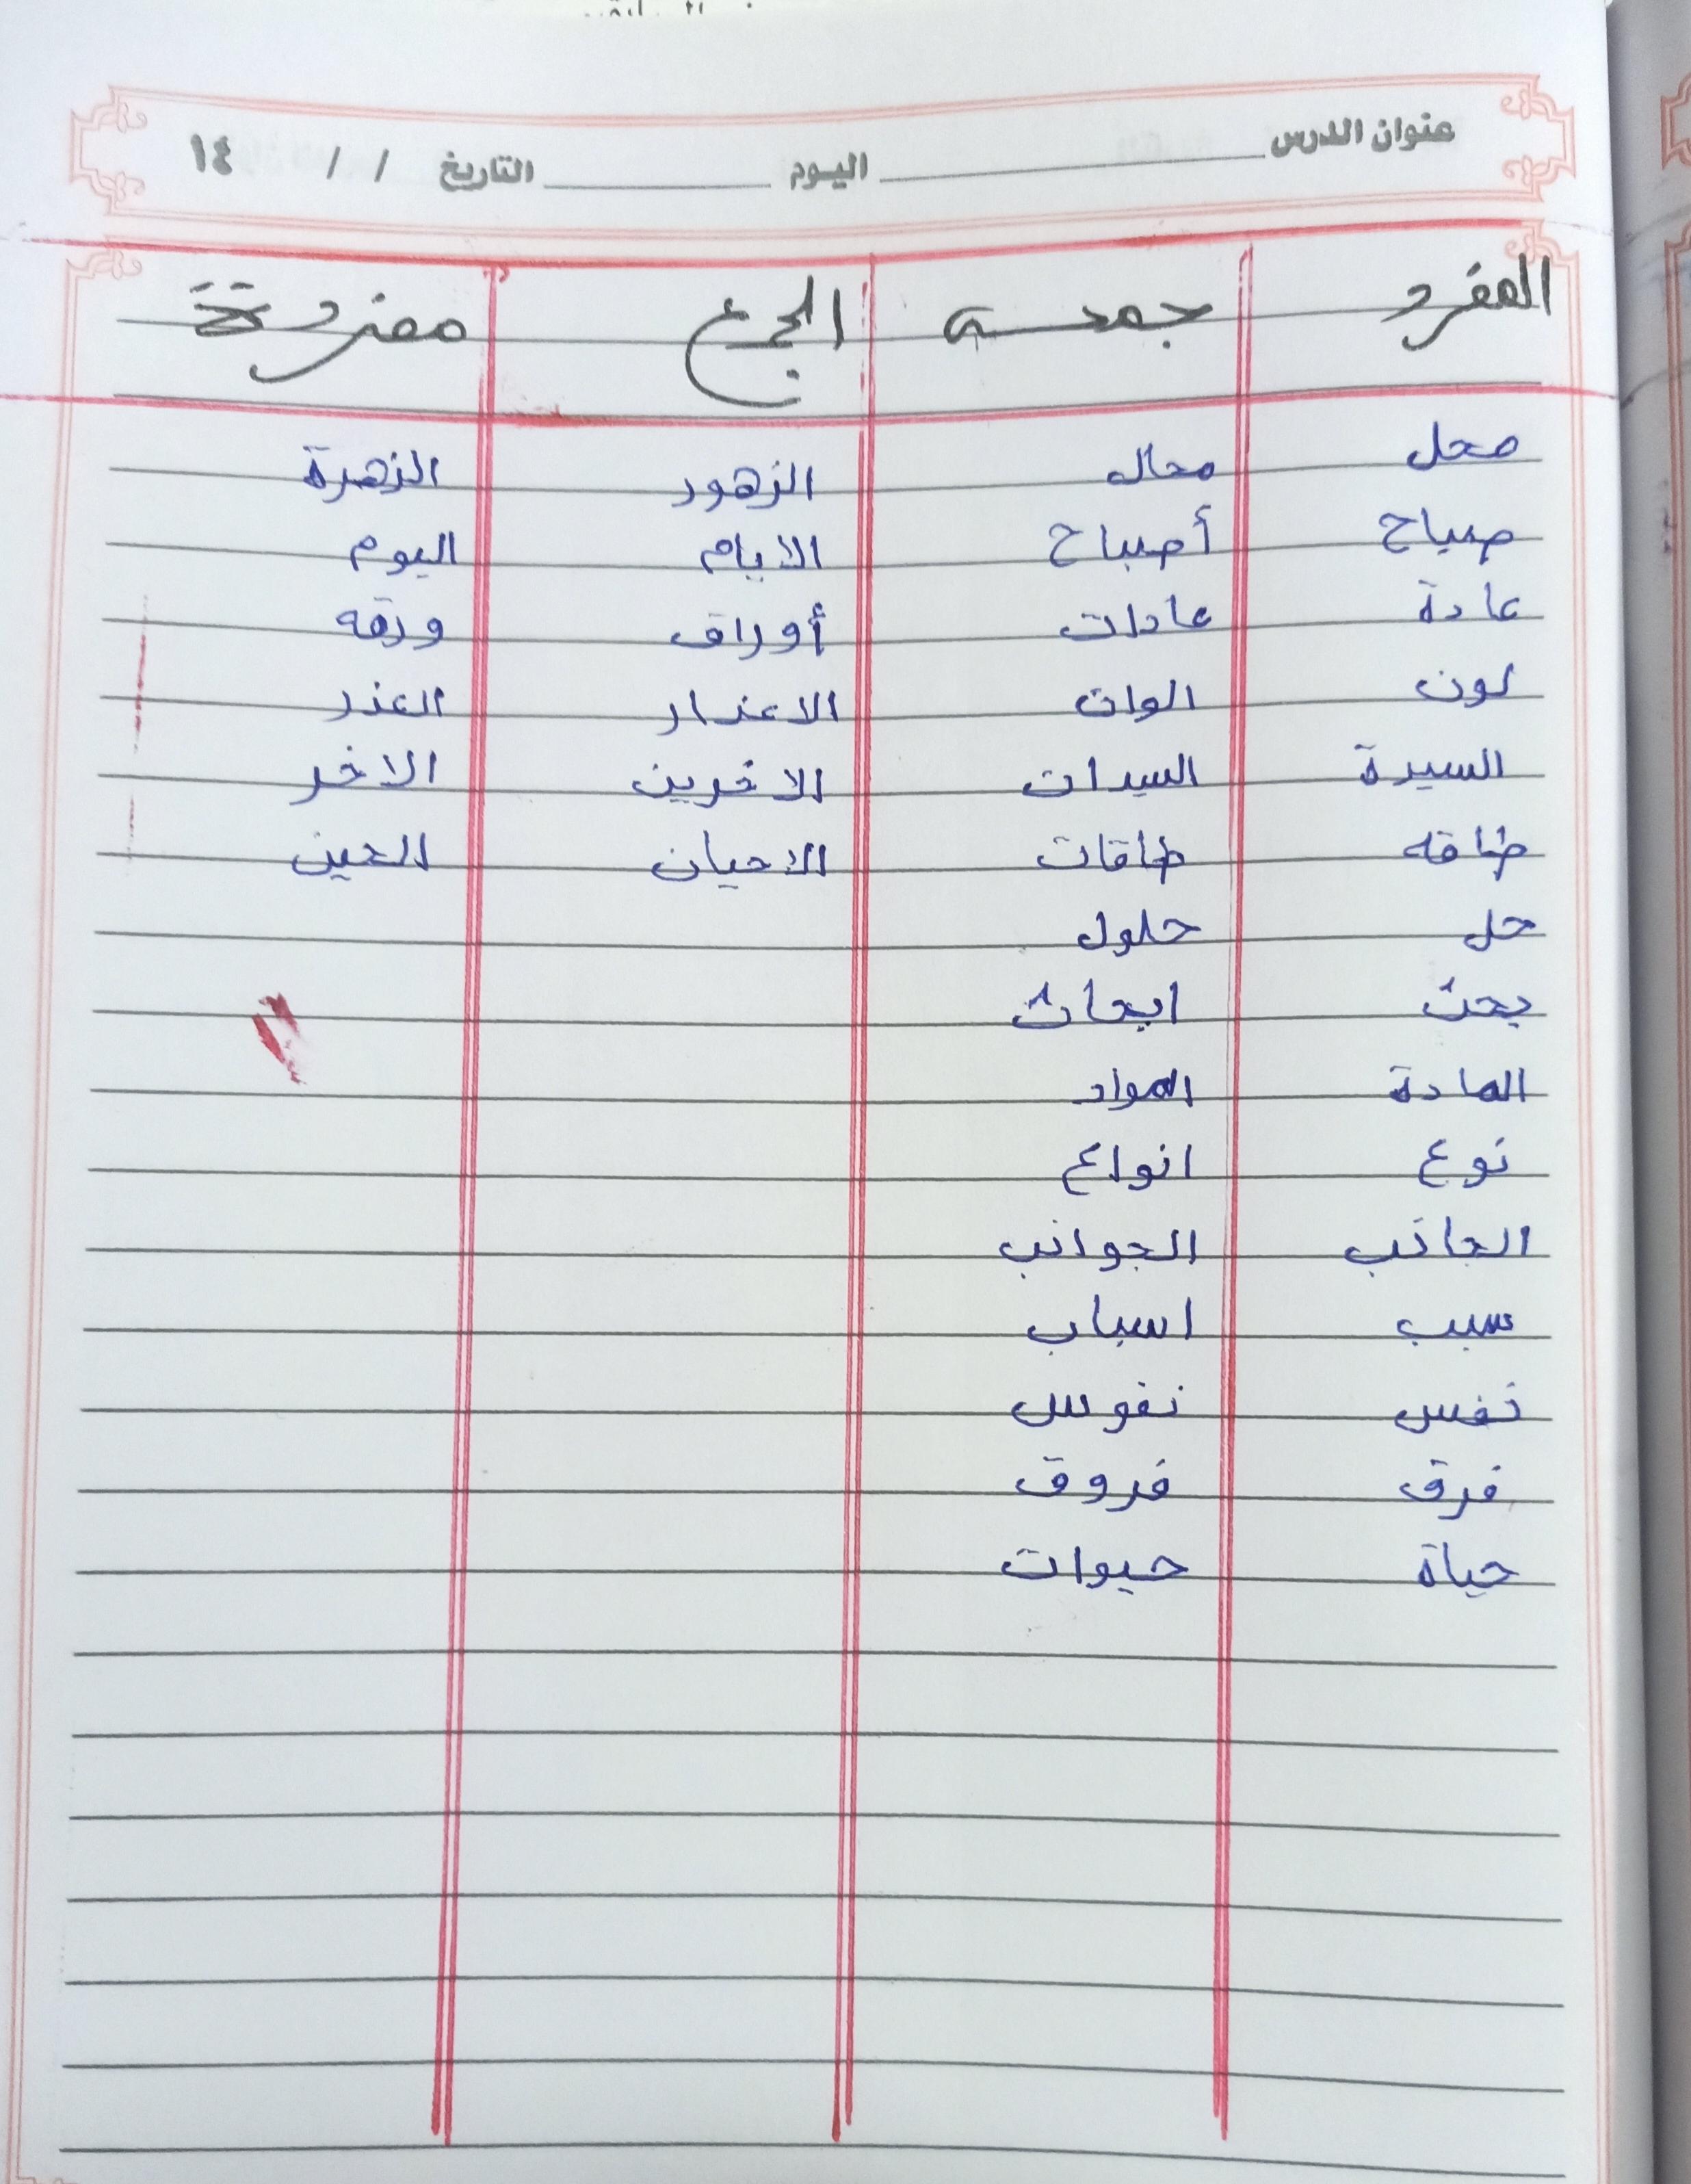 عنوان الدرس اليوم التاريخ / / ١٤
المفرد جمعه الجمع مفردة
محل محال الزهور الزهرة
صباح أصباح الايام اليوم
عادة عادات أوراق ورقه
لون الوان الاعذار العذر
السيدة السيدات الاخرين الاخر
طاقه طاقات الاحيان الحين
حل حلول
بحث ابحاث
المادة المواد
نوع انواع
الجانب الجوانب
سبب اسباب
نفس نفوس
فرق فروق
حياة حيوات